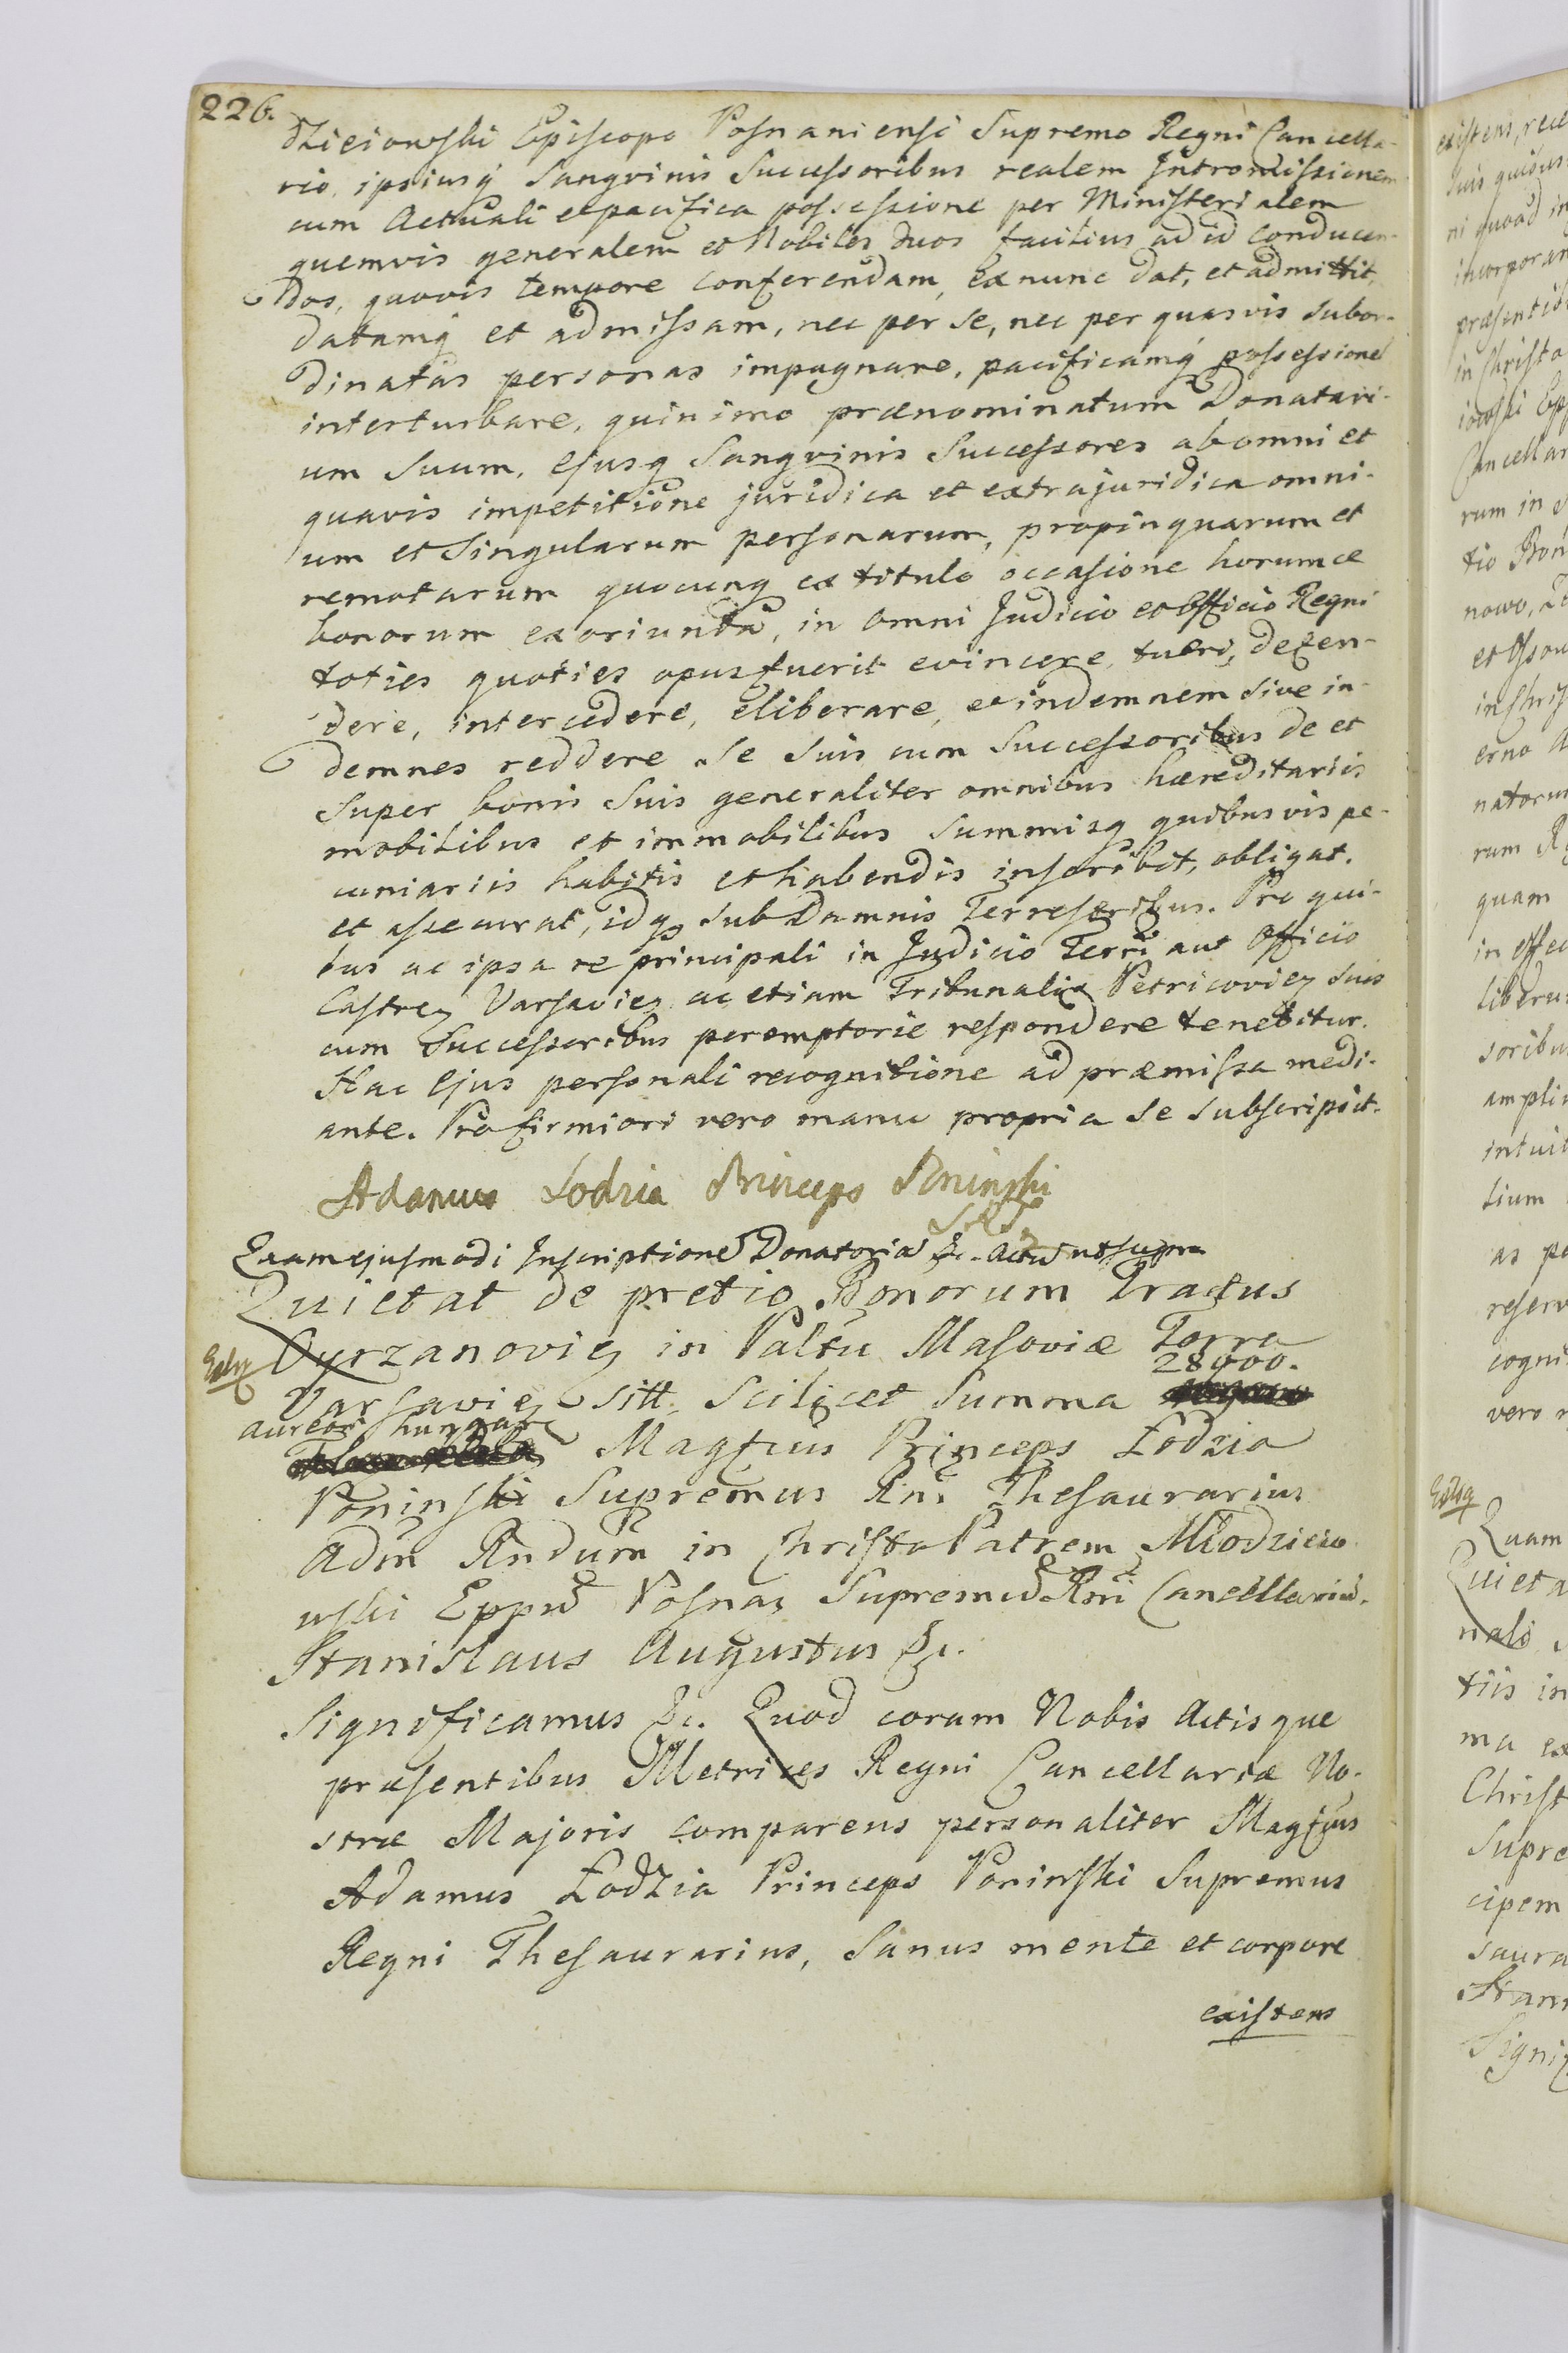 226.
dzieiowski Episcopo Posnaniensi Supremo Regni Cancella-
rio, ipsiusq̃ Sangvinis Successoribus realem Intromissionem
cum Actuali et pacifica possessione per Ministerialem
quemvis generalem et Nobiles duos facilius ad id conducen-
dos, quovis tempore conferendam, ex nunc dat, et admittit,
datamq̃ et admissam, nec per se, nec per quasvis subor-
dinatas personas impugnare, pacificamq̃ possessionē
interturbare, quinimo prænominatum Donatari-
um Suum, ejusq̃ Sangvinis Successores ab omni et
quavis impetitione juridica et extrajuridica omni-
um et Singularum personarum, propinquarum et
remotarum quocunq̃ ex titulo occasione horumce
bonorum exoriunda, in omni Judicio et Officio Regni
toties quoties opus fuerit evincere, tueri, defen-
dere, intercedere, eliberare, et indemnem sive in-
demnes reddere se suis cum Successoribus de et
super bonis Suis generaliter omnibus hæreditariis
mobilibus et immobilibus Summisq̃ quibusvis pe-
cuniariis habitis et habendis inscribit, obligat,
et assecurat, idq̃ sub Damnis Terrestribus. Pro qui-
bus ac ipsa re principali in Judicio Terrī aut Officio
Castreȝ Varsavieȝ ac etiam Tribunalis Petricovieȝ suis
cum Successoribus peremptorie respondere tenebitur.
Hac Ejus personali recognitione ad præmissa medi-
ante. Pro firmiori vero manu propria se subscripsit.
Adamus Lodzia Princeps Poninski
Quam ejusmodi Inscriptionē Donatoriā &c. Actū ut supra
Quietat de pretio Bonorum Tractus
Oyrzanovieȝ in Paltu Masoviæ Terra
28,000.
Varsavieȝ sitt. scilicet Summa
aureor̃ hungar̃
Magfcus Princeps Łodzia
Poninski Supremus Rni Thesaurarius
Adm̄ Rndum in Christo Patrem Młodziejo
wski Eppū Posnaȝ Supremū Rni Cancellariū.
Stanislaus Augustus &c.
Significamus &c. Quod coram Nobis Actisque
præsentibus Metrices Regni Cancellariæ No-
stræ Majoris comparens personaliter Magfcus
Adamus Łodzia Princeps Poninski Supremus
Regni Thesaurarius, Sanus mente et corpore
existens